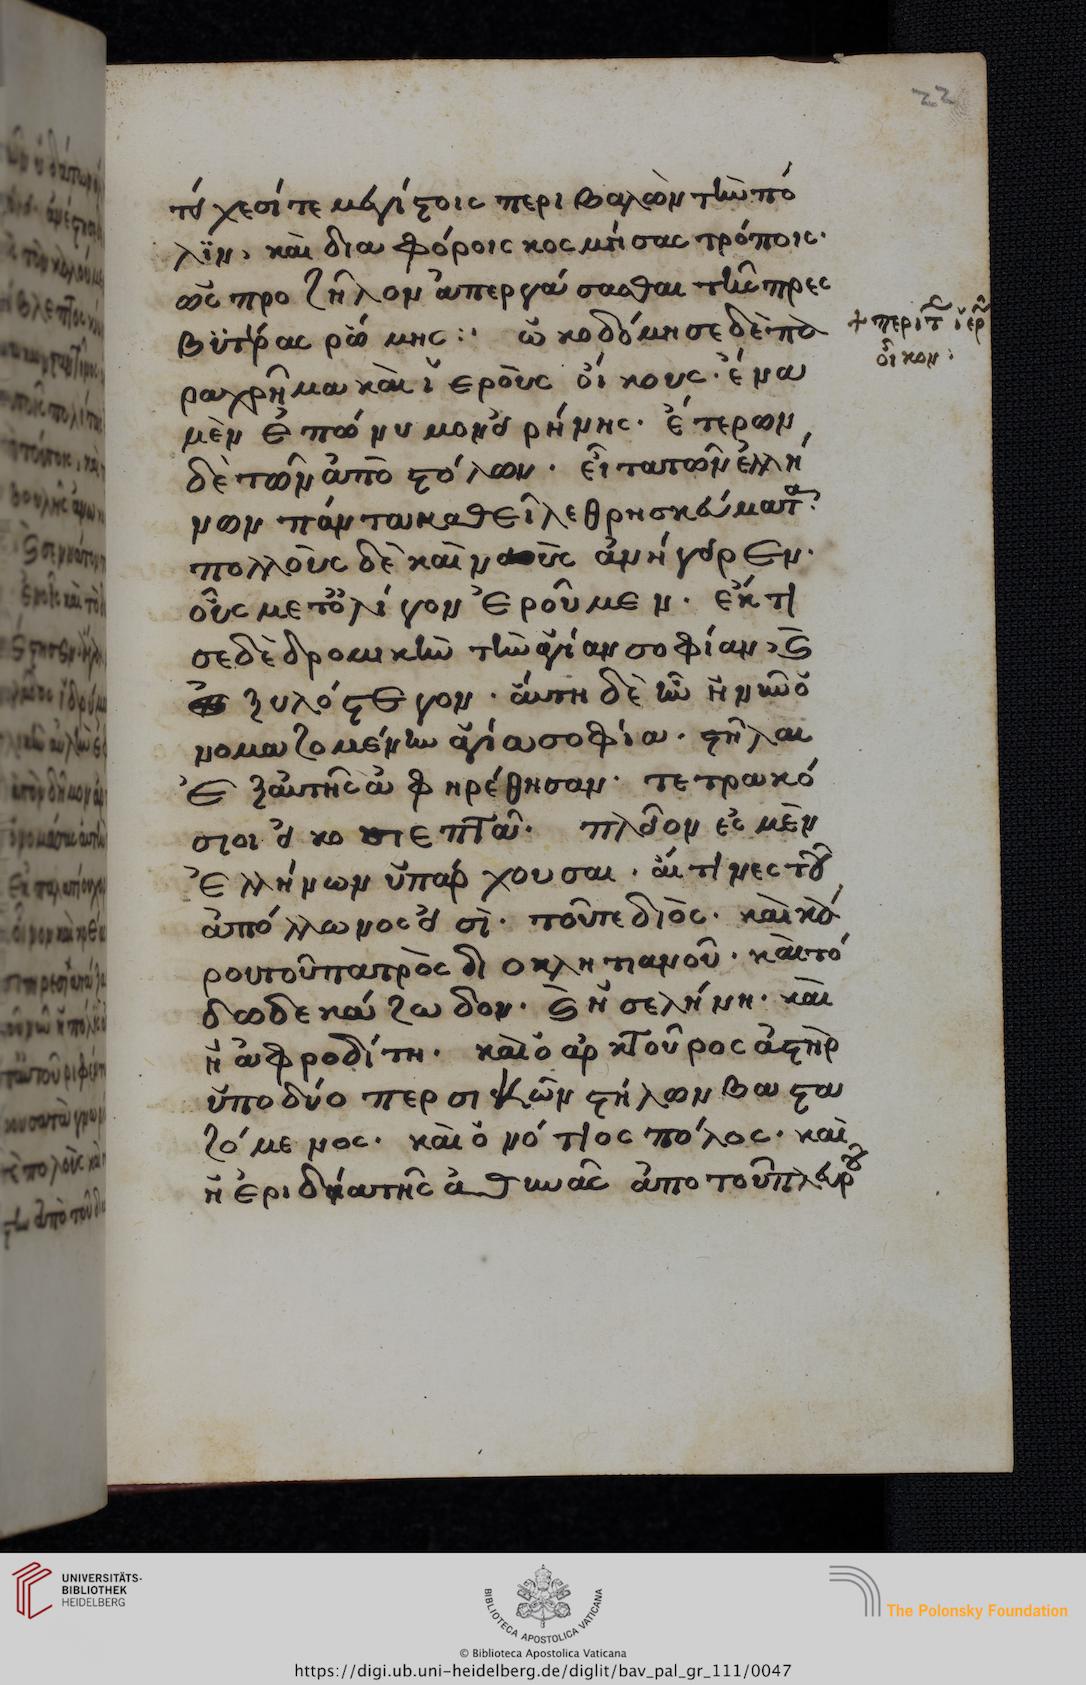 22
τείχεσί τε μεγίστοις περιβαλὼν τὴν πό
λϊν, καὶ διαφόροις κοσμήσας τρόποις·
ὡς προ ζῆλον ἀπεργάσασθαι τῆς πρεσ
βϋτέρας ῥώμης :· ὠκοδόμησε δὲ πα
ραχρῆμα καὶ ἱ̈ερους οἴκους· ἕνα
μὲν ἐπώνυμον εἰρήνης· ἕτερων
δὲ τῶν ἀποστόλων· εἶτα τῶν ἑλλή
νων πάντα καθεῖλε θρησκεύματα:
πολλοὺς δὲ καὶ ναοὺς ἀνήγειρεν·
οὓς μετ' ὀλίγον ἐροῦμεν· ἔκτι
σε δὲ δρομικὴν τὴν ἁγίαν σοφίαν, καὶ
ξυλόστεγον· αὕτη δὲ ἦν ἡ νῦν ὀ
νομαζομένη ἁγία σοφία· στῆλαι
ἐξ αὐτῆς ἀφηρέθησαν· τετρακό
σιοι εἰκοσιεπτα· πλεῖον ἐς μὲν
ἑλλήνων ὑπάρχουσαι· αἵτινες τοῦ
ἀπόλλωνος εἰσὶ· τοῦ τε διὸς· καὶ κά
ρου τοῦ πατρὸς διοκλητιανοῦ· καὶ τὸ
δωδεκάζωδον· καὶ ἡ σελήνη· καὶ
ἡ ἀφροδίτη· καὶ ὁ ἀρκτοῦρος ἀστὴρ
ὑπο δύο περσικῶν στήλων βαστα
ζόμενος· καὶ ὁ νότιος πόλος· καὶ
ἡ ἐρι δία τῆς ἀθηνᾶς ἀπο τοῦ πλευροῦ
+ περι τῶν ἱ̈ερῶν
οἴκων:
UNIVERSITÄTS-
BIBLIOTHEK
HEIDELBERG
BIBLIOTECA APOSTOLICA VATICANA
© Biblioteca Apostolica Vaticana
The Polonsky Foundation
https://digi.ub.uni-heidelberg.de/diglit/bav_pal_gr_111/0047